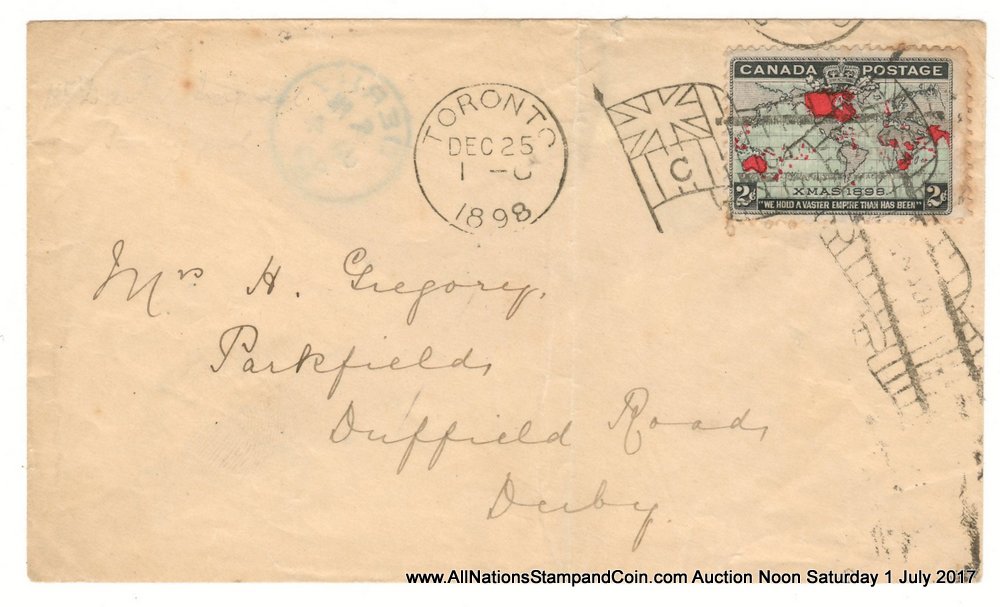 TORONTO
DEC 25
1898
C
CANADA POSTAGE
XMAS 1898
2¢ 2¢
"WE HOLD A VASTER EMPIRE THAN HAS BEEN"
Mrs H. Gregory,
Parkfields,
Duffield Road,
Derby.
www.AllNationsStampandCoin.com Auction Noon Saturday 1 July 2017